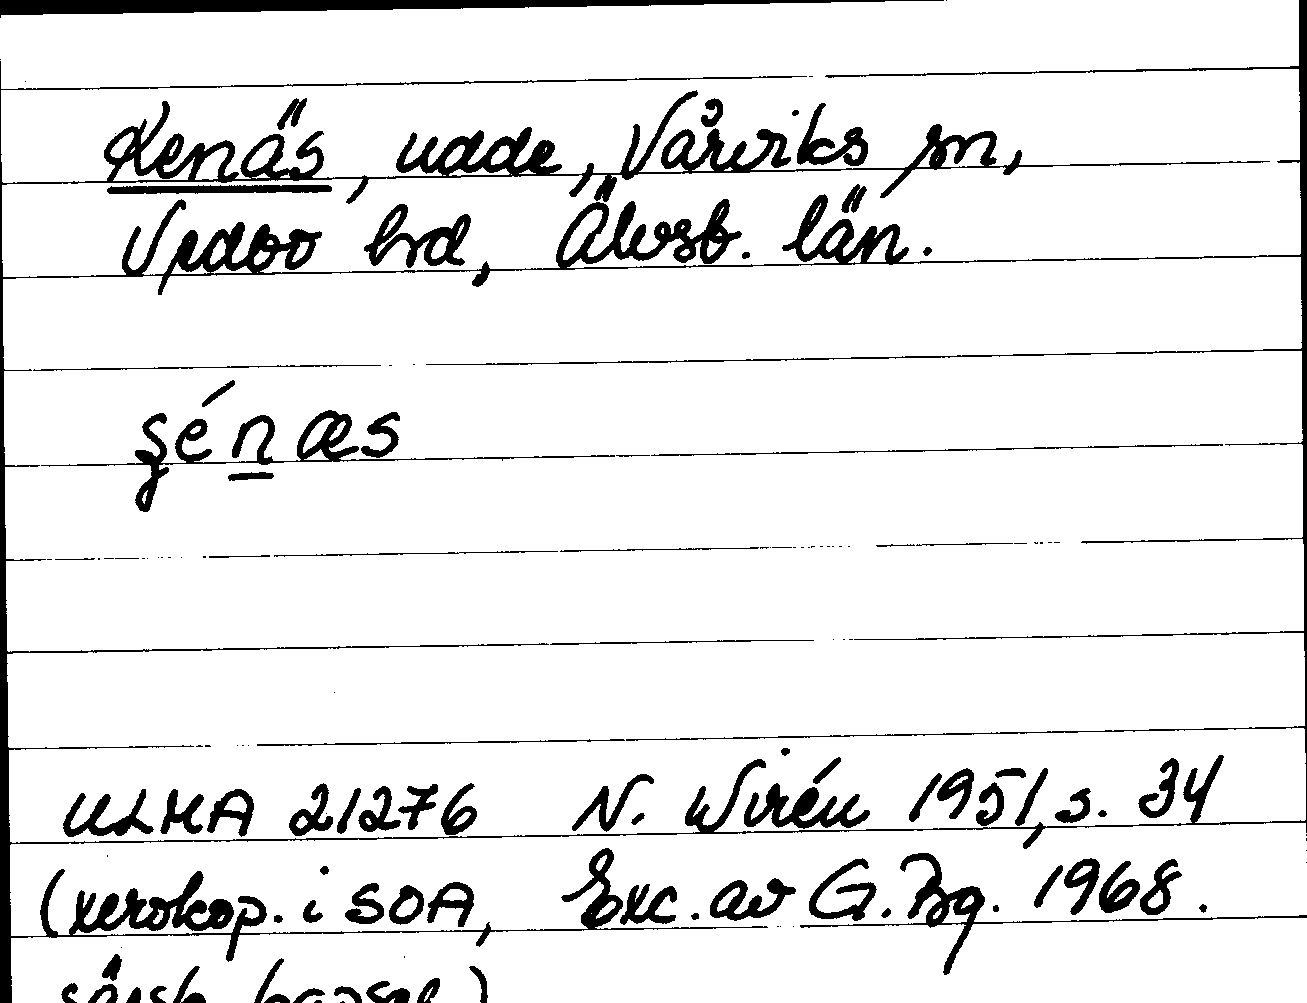 Kenäs, udde, Vårviks sn,
Vedbo hd, Älvsb. län.
ʂénæs
ULMA 21276 N. Wirén 1951, s. 34
(xerokop. i SOA, Exc. av G. Bg. 1968.
särsk. kapsel)